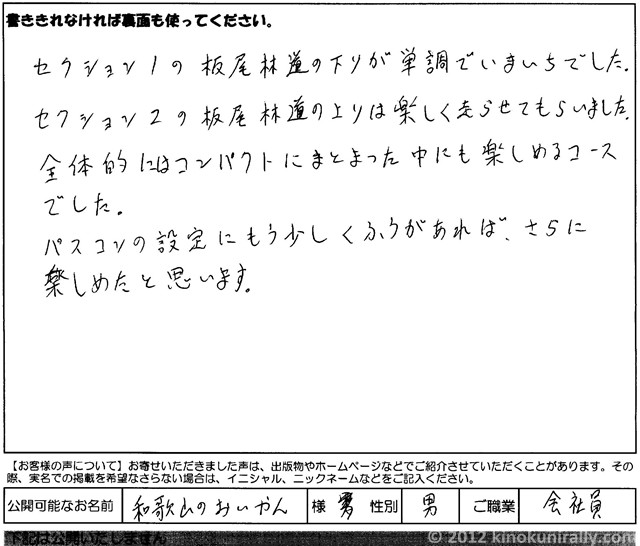 書ききれなければ裏面も使ってください。
セクション1の板尾林道の下りが単調でいまいちでした。
セクション2の板尾林道の上りは楽しく走らせてもらいました。
全体的にはコンパクトにまとまった中にも楽しめるコース
でした。
パスコンの設定にもう少しくふうがあれば、さらに
楽しめたと思います。
【お客様の声について】お寄せいただきました声は、出版物やホームページなどでご紹介させていただくことがあります。その
際、実名での掲載を希望なさらない場合は、イニシャル、ニックネームなどをご記入ください。
公開可能なお名前 和歌山のおいやん 様 性別 男 ご職業 会社員
下記は公開いたしません
© 2012 kinokunirally.com